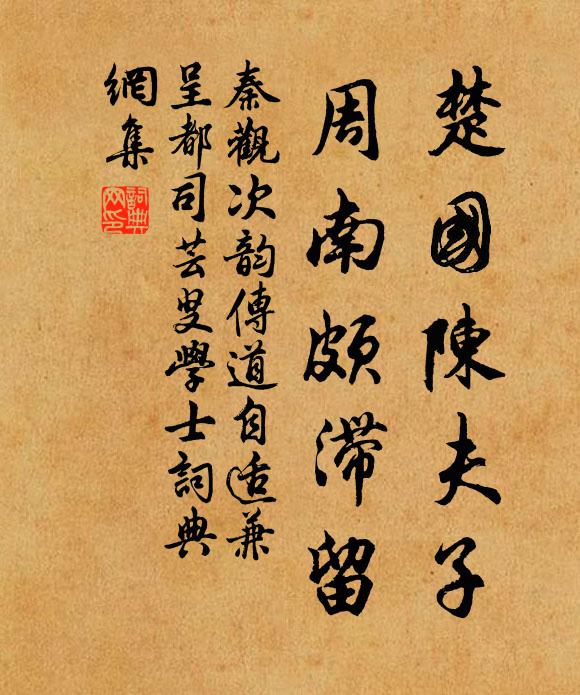 楚國陳夫子
周南頗滯留
秦觀次韵傳道自适兼
呈都司芸叟學士詞典
網集
詞典
网印